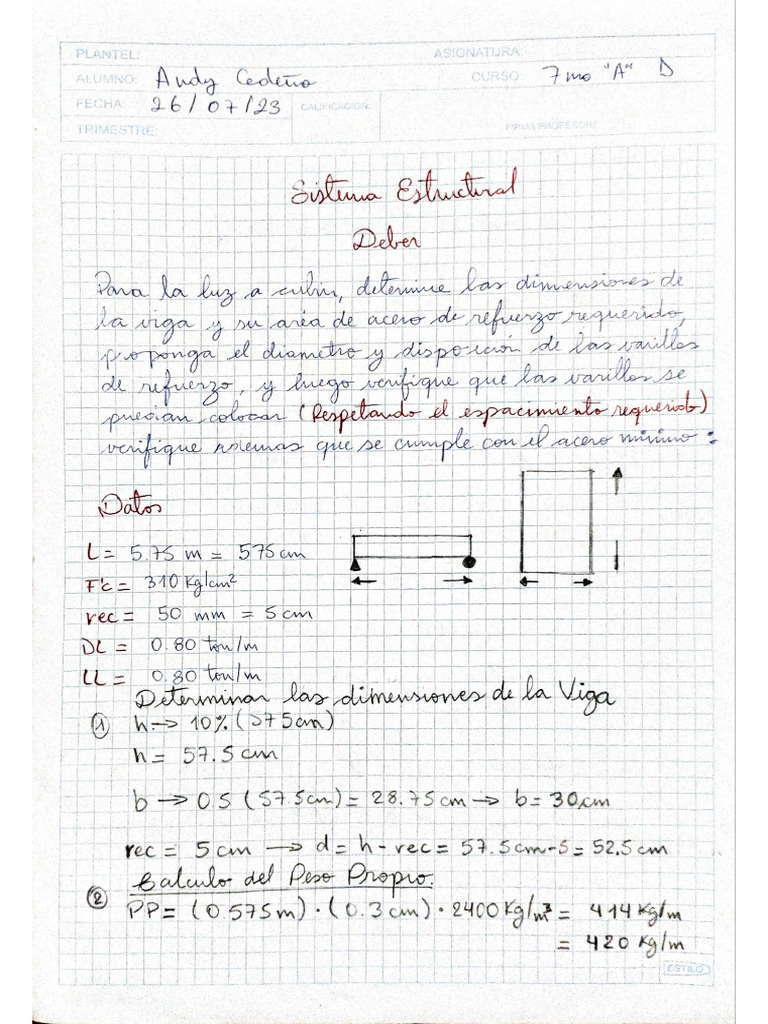 PLANTEL: ASIGNATURA:
ALUMNO: Andy Cedeño CURSO 7mo "A" D
FECHA: 26/07/23 CALIFICACIÓN: FIRMA PROFESOR/
TRIMESTRE:
Sistema Estructural
Deber
Para la luz a cubrir, determine las dimensiones de
la viga y su area de acero de refuerzo requerido,
proponga el diametro y disposición de las varillas
de refuerzo, y luego verifique que las varillas se
puedan colocar (Respetando el espaciamiento requerido)
verifique ademas que se cumple con el acero mínimo:
Datos
L = 5.75 m = 575 cm
F'c = 310 Kg/cm²
rec = 50 mm = 5 cm
DL = 0.80 ton/m
LL = 0.80 ton/m
Determinar las dimensiones de la Viga
① h -> 10% (575 cm)
h = 57.5 cm
b -> 0.5 (57.5cm) = 28.75 cm -> b = 30 cm
rec = 5 cm -> d = h - rec = 57.5cm - 5 = 52.5 cm
Calculo del Peso Propio.
② PP = (0.575m) · (0.3 cm) · 2400 Kg/m³ = 414 Kg/m
= 420 Kg/m
ESTILO